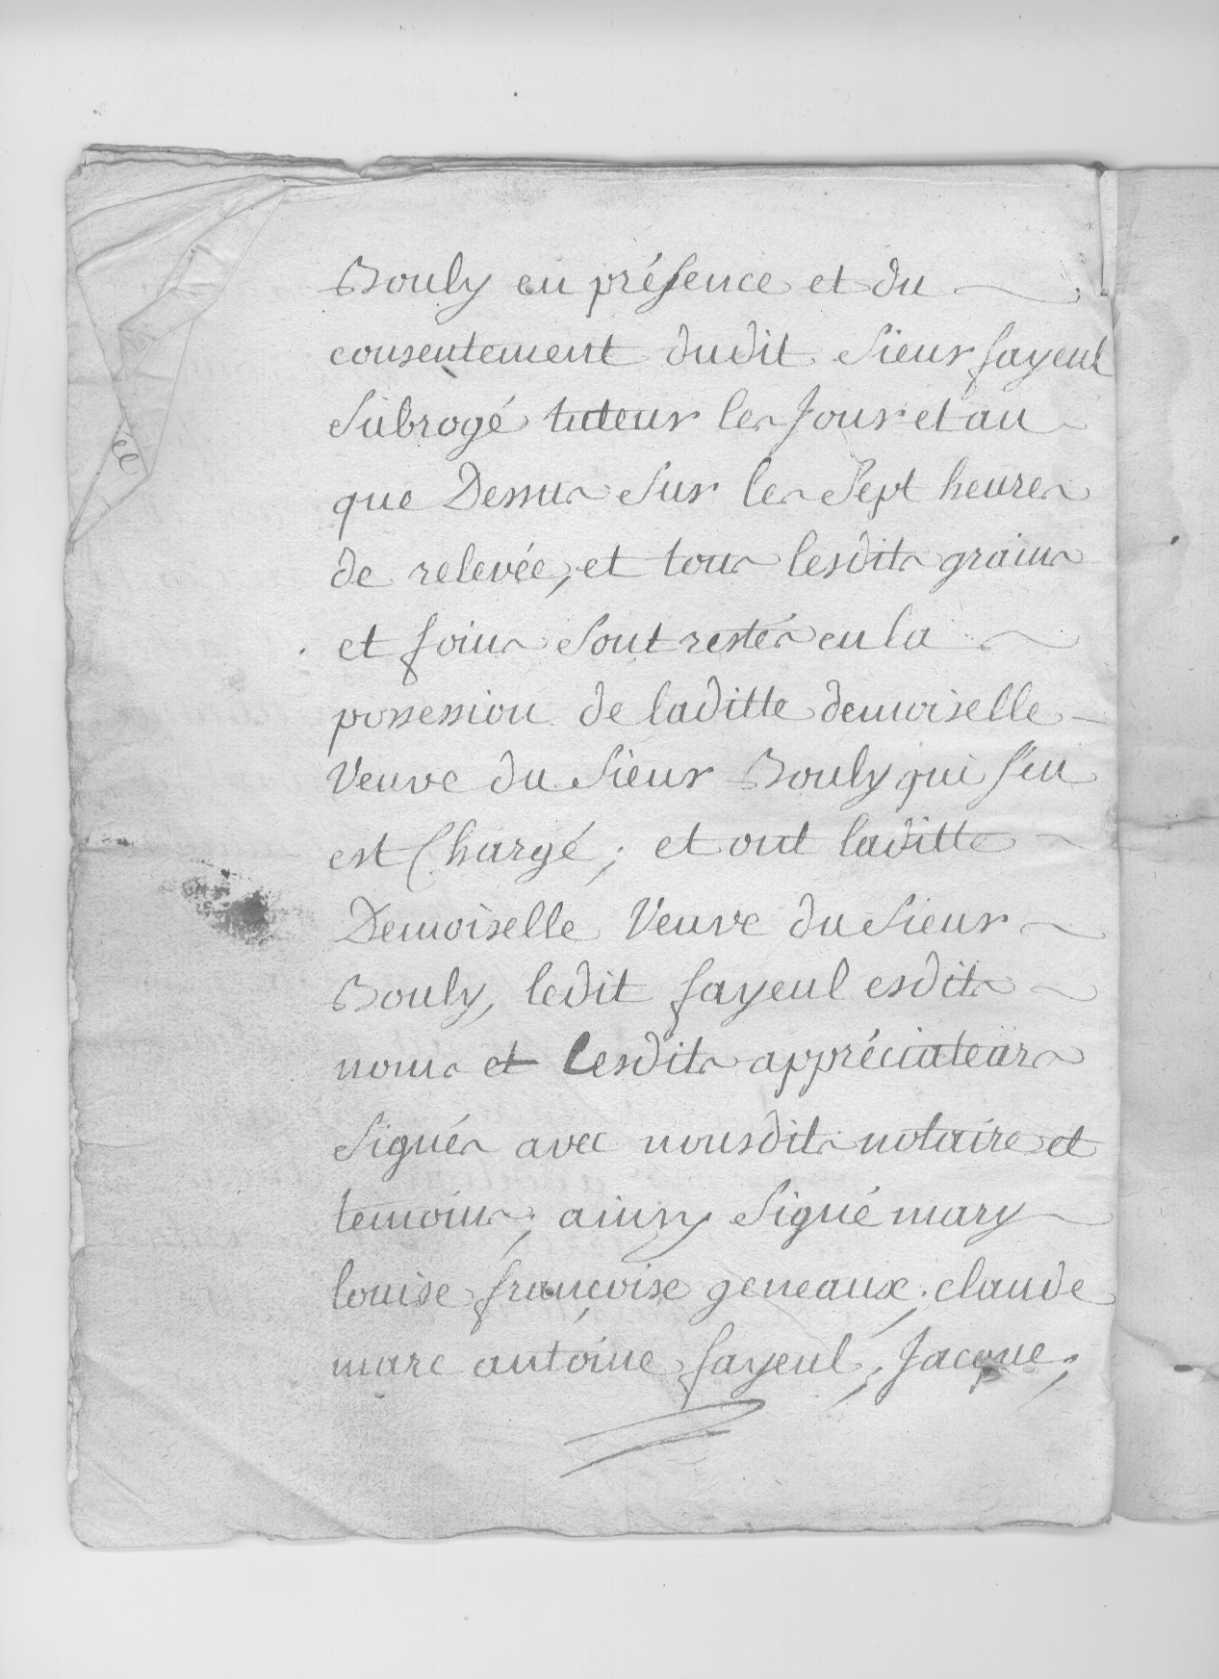 Bouly en présence et du
consentement dudit Sieur fayeul
Subrogé tuteur les Jour et an
que Dessus Sur les Sept heures
de relevée, et tous lesdits grains
et foins Sont restés en la
possession de laditte demoiselle
Veuve du Sieur Bouly qui s'en
est Chargé; et ont laditte
Demoiselle Veuve du Sieur
Bouly, ledit fayeul esdits
noms et Lesdits appréciateurs
Signés avec nousdits notaire et
temoins; ainsy Signé mary
louise françoise geneaux; claude
marc antoine fayeul; Jacque;